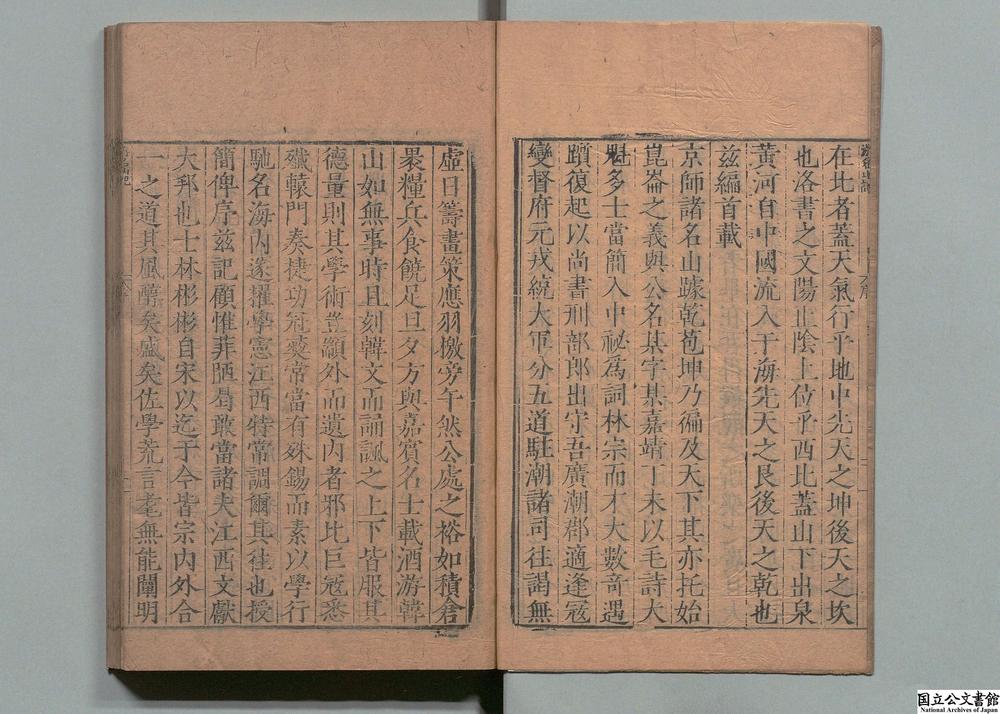 在北者蓋天氣行乎地中先天之坤後天之坎
也洛書之文陽止陰上位乎西北蓋山下出泉
黃河自中國流入于海先天之艮後天之乾也
茲編首載
京師諸名山罅乾苞坤乃徧及天下其亦托始
崑崙之義與公名某字某嘉靖丁未以毛詩大
魁多士當簡入中祕爲詞林宗而才大數奇遇
躓復起以尚書刑部郎出守吾廣潮郡適逢寇
變督府元戎統大軍分五道駐潮諸司往謁無
虛日籌畫策應羽檄旁午然公處之裕如積倉
褁糧兵食饒足旦夕方與嘉賓名士載酒游韓
山如無事時且刻韓文而誦諷之上下皆服其
德量則其學術豈顓外而遺内者邪比巨寇悉
殲轅門奏捷功冠羙常當有殊錫而素以學行
馳名海内遂擢學憲江西特當調爾其往也授
簡俾序茲記顧惟菲陋曷敢當諸夫江西文獻
大邦也士林彬彬自宋以迄于今皆宗内外合
一之道其風醲矣盛矣佐學荒言耄無能闡明
国立公文書館
National Archives of Japan